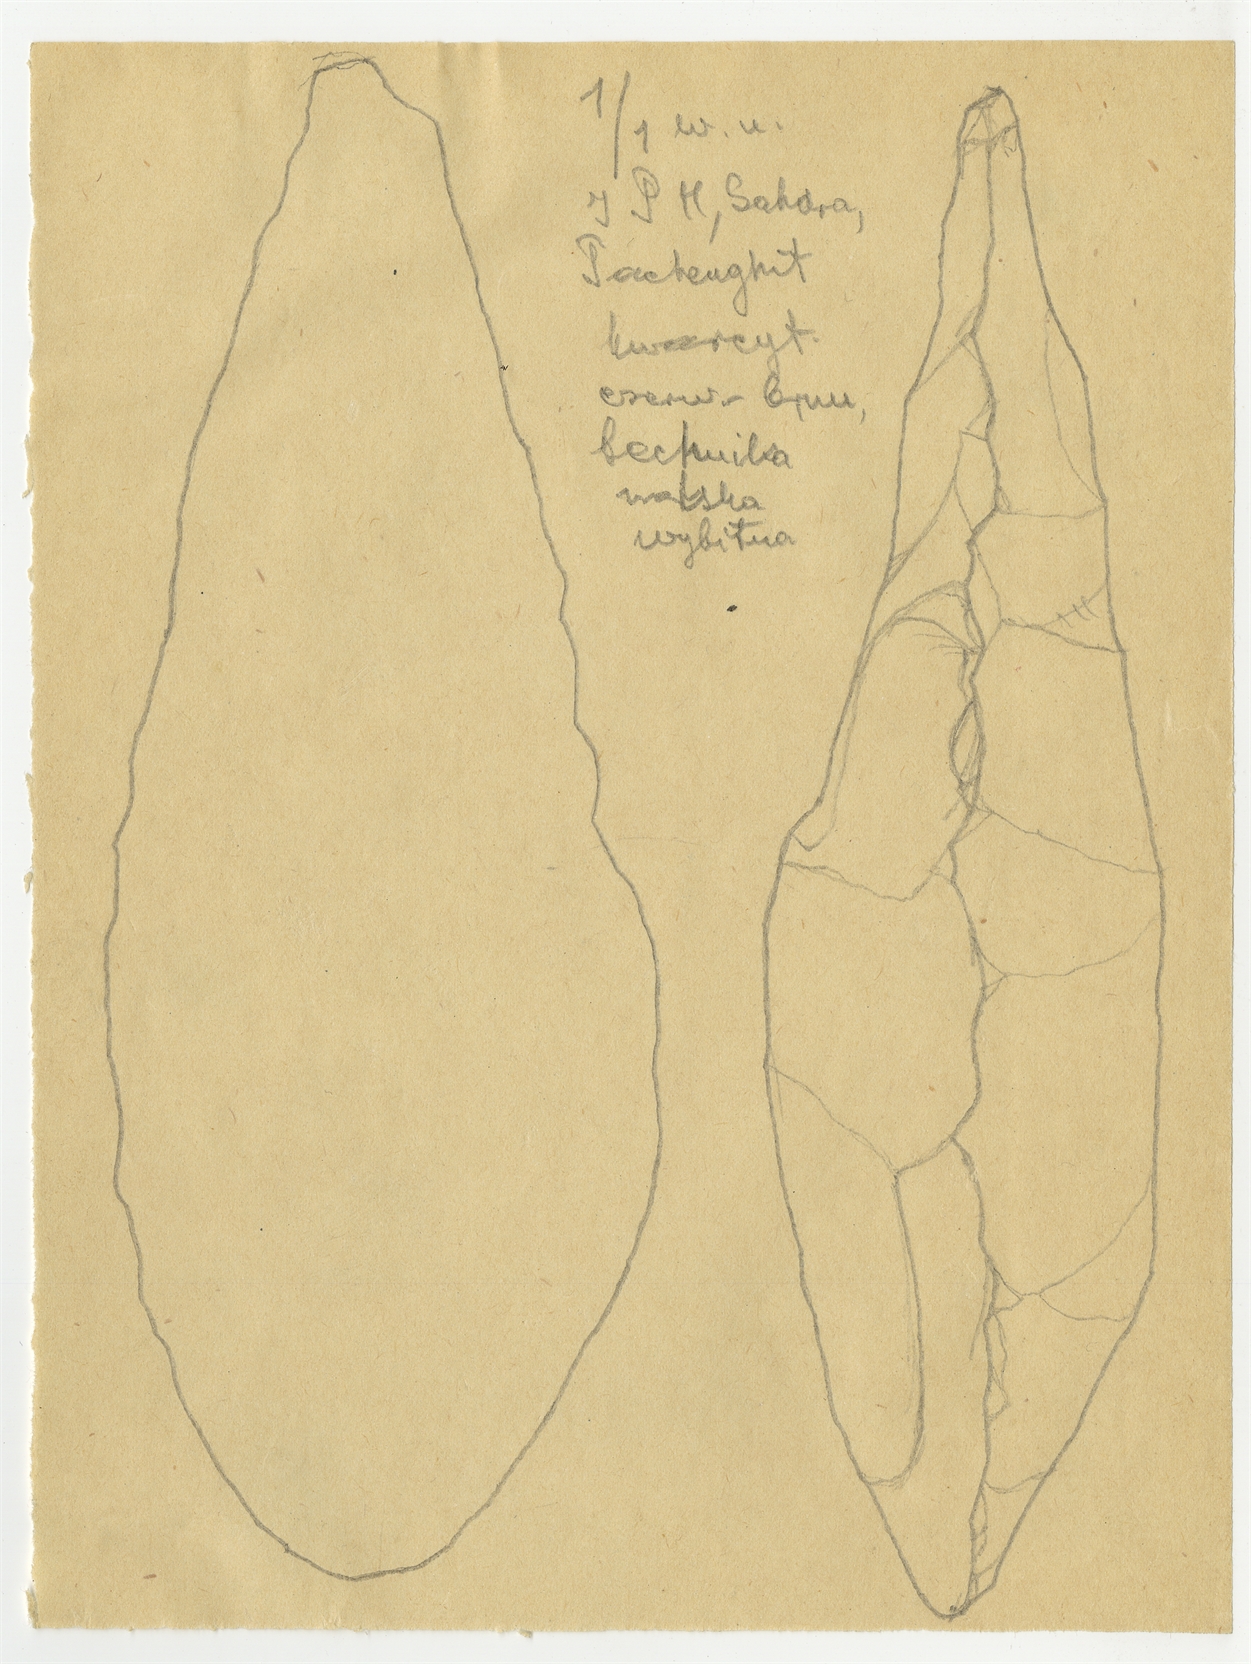 1/1 w. u.
J P H, Sahara,
Tachenghit
kwarcyt
czerw.- brun,
technika
walska
wybitna